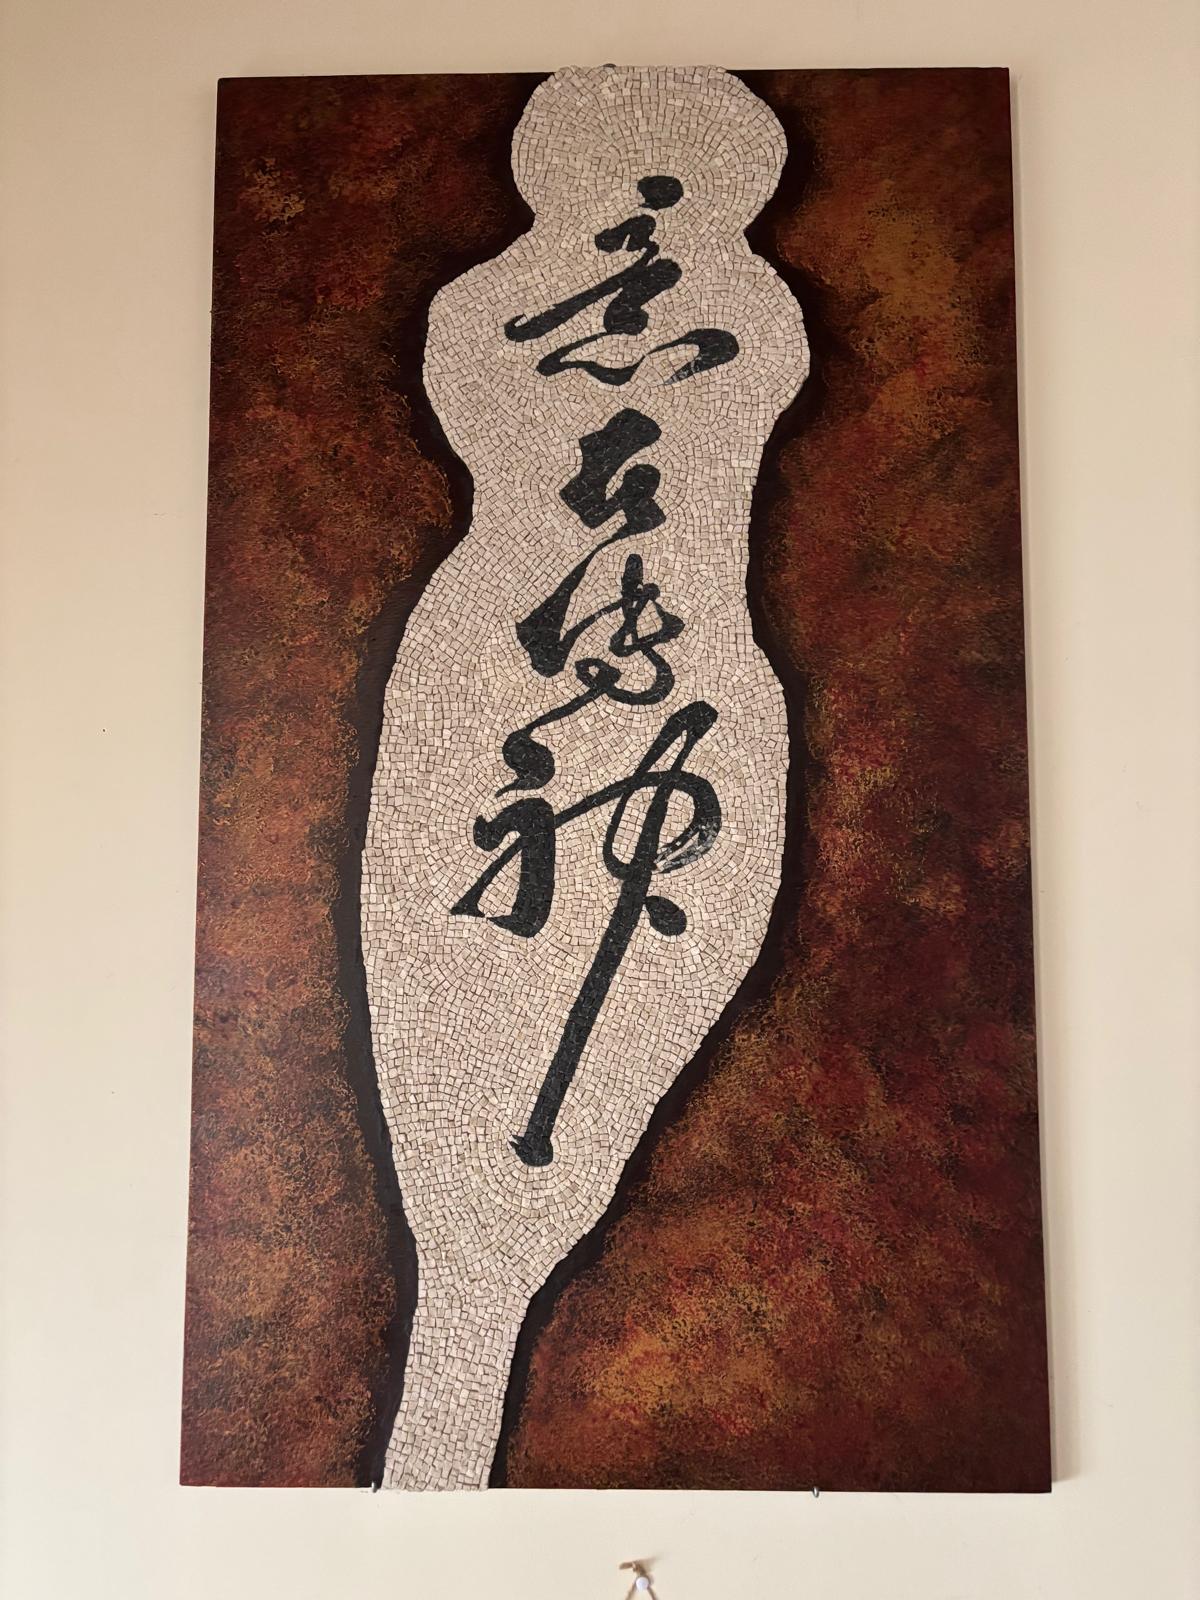 意在傳神